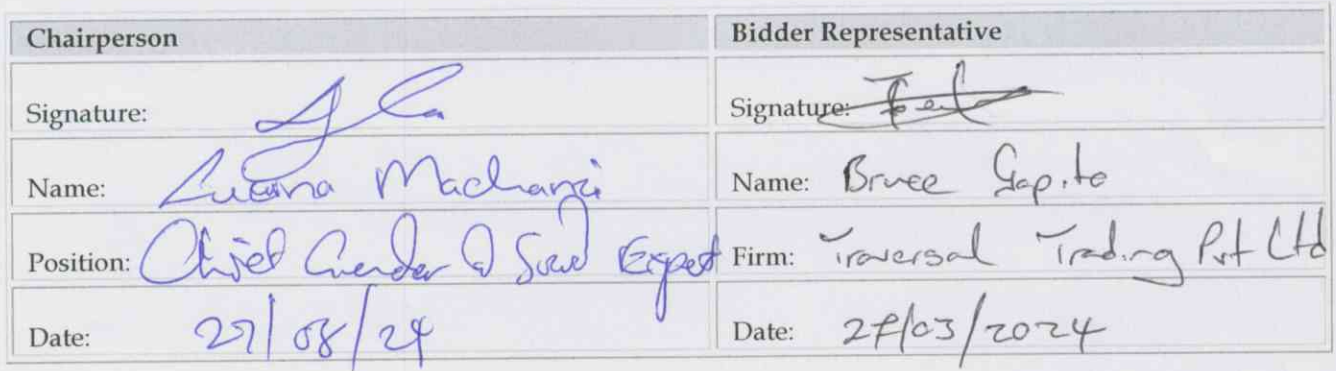 Chairperson
Bidder Representative
Signature:
Signature:
Name: Machanzi
Name: Bruce Gapito
Position: Chief Gender & Expert
Firm: Traversal Trading Pvt Ltd
Date: 27/08/24
Date: 27/03/2024